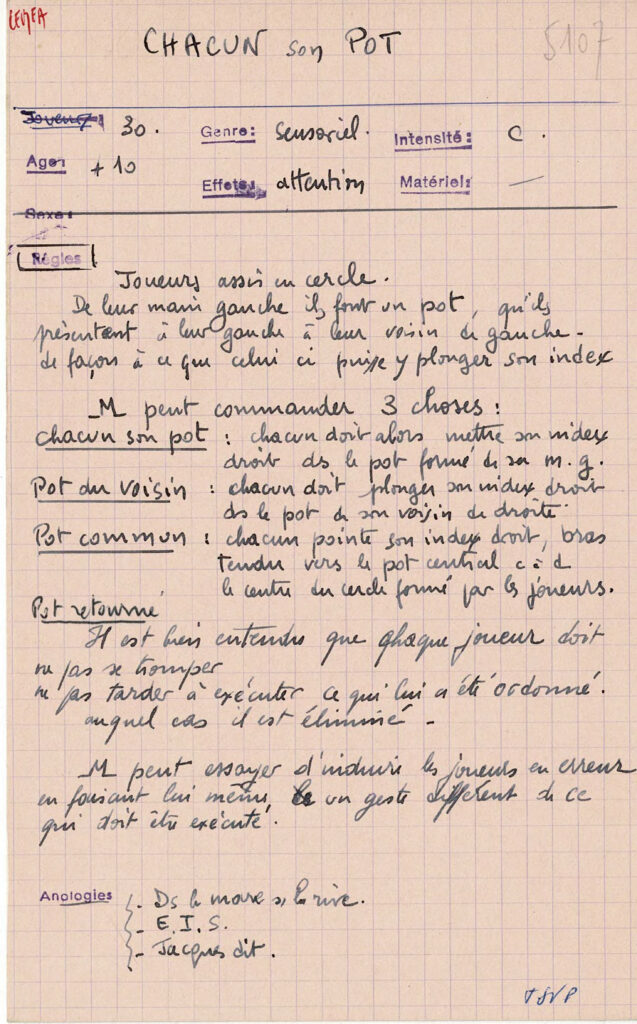 CEMEA
CHACUN son POT
5107
Joueurs: 30. Genre: Sensoriel. Intensité: C.
Age: +10 Effets: attention Matériel: —
Sexe:
Règles
Joueurs assis en cercle.
De leur main gauche ils font un pot, qu'ils
présentent à leur gauche à leur voisin de gauche -
de façon à ce que celui ci puisse y plonger son index
M peut commander 3 choses :
chacun son pot : chacun doit alors mettre son index
droit ds le pot formé de sa m. g.
Pot du voisin : chacun doit plonger son index droit
ds le pot de son voisin de droite
Pot commun : chacun pointe son index droit, bras
tendu vers le pot central c à d
le centre du cercle formé par les joueurs.
Pot retourné
Il est bien entendu que chaque joueur doit
ne pas se tromper
ne pas tarder à exécuter ce qui lui a été ordonné.
auquel cas il est éliminé -
M peut essayer d'induire les joueurs en erreur
en faisant lui même, un geste différent de ce
qui doit être exécuté.
Analogies - Ds la mare la rive.
- E.I.S.
- Jacques dit.
TSVP